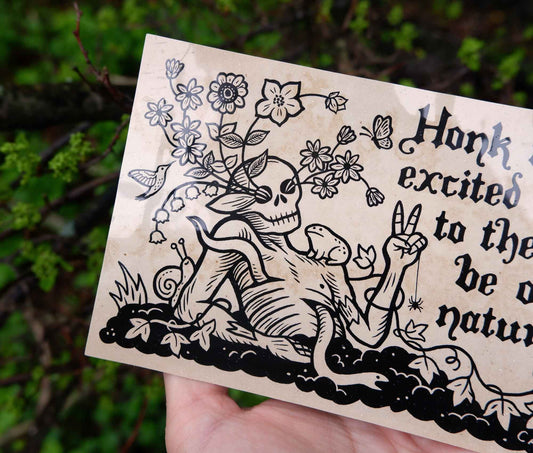 Honk
excited
to the
be o
natur